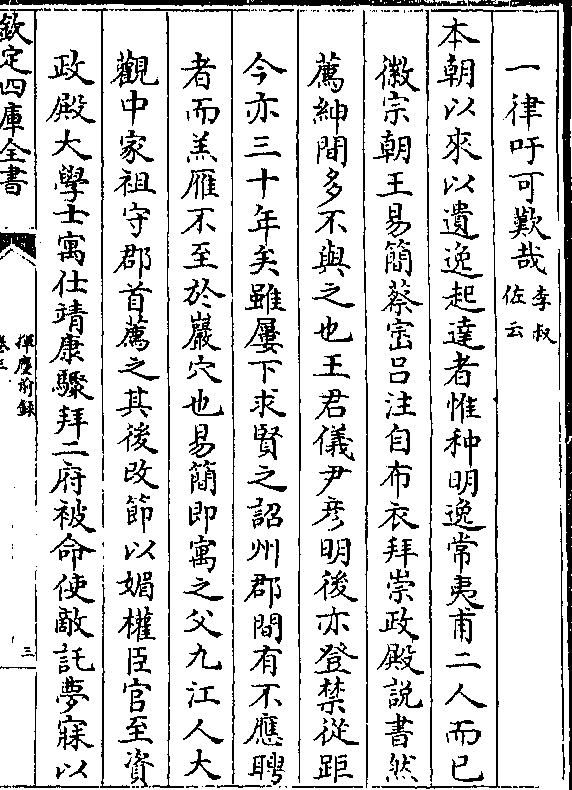 一律吁可歎哉李叔佐云
本朝以來以遺逸起達者惟种明逸常夷甫二人而已
徽宗朝王易簡蔡寍吕注自布衣拜崇政殿説書然
薦紳間多不與之也王君儀尹彦明後亦登禁從距
今亦三十年矣雖屢下求賢之詔州郡間有不應聘
者而羔雁不至於巖穴也易簡即寓之父九江人大
觀中家祖守郡首薦之其後改節以媚權臣官至資
政殿大學士寓仕靖康驟拜二府被命使敵託夢寐以
欽定四庫全書
揮麈前録
卷三
三